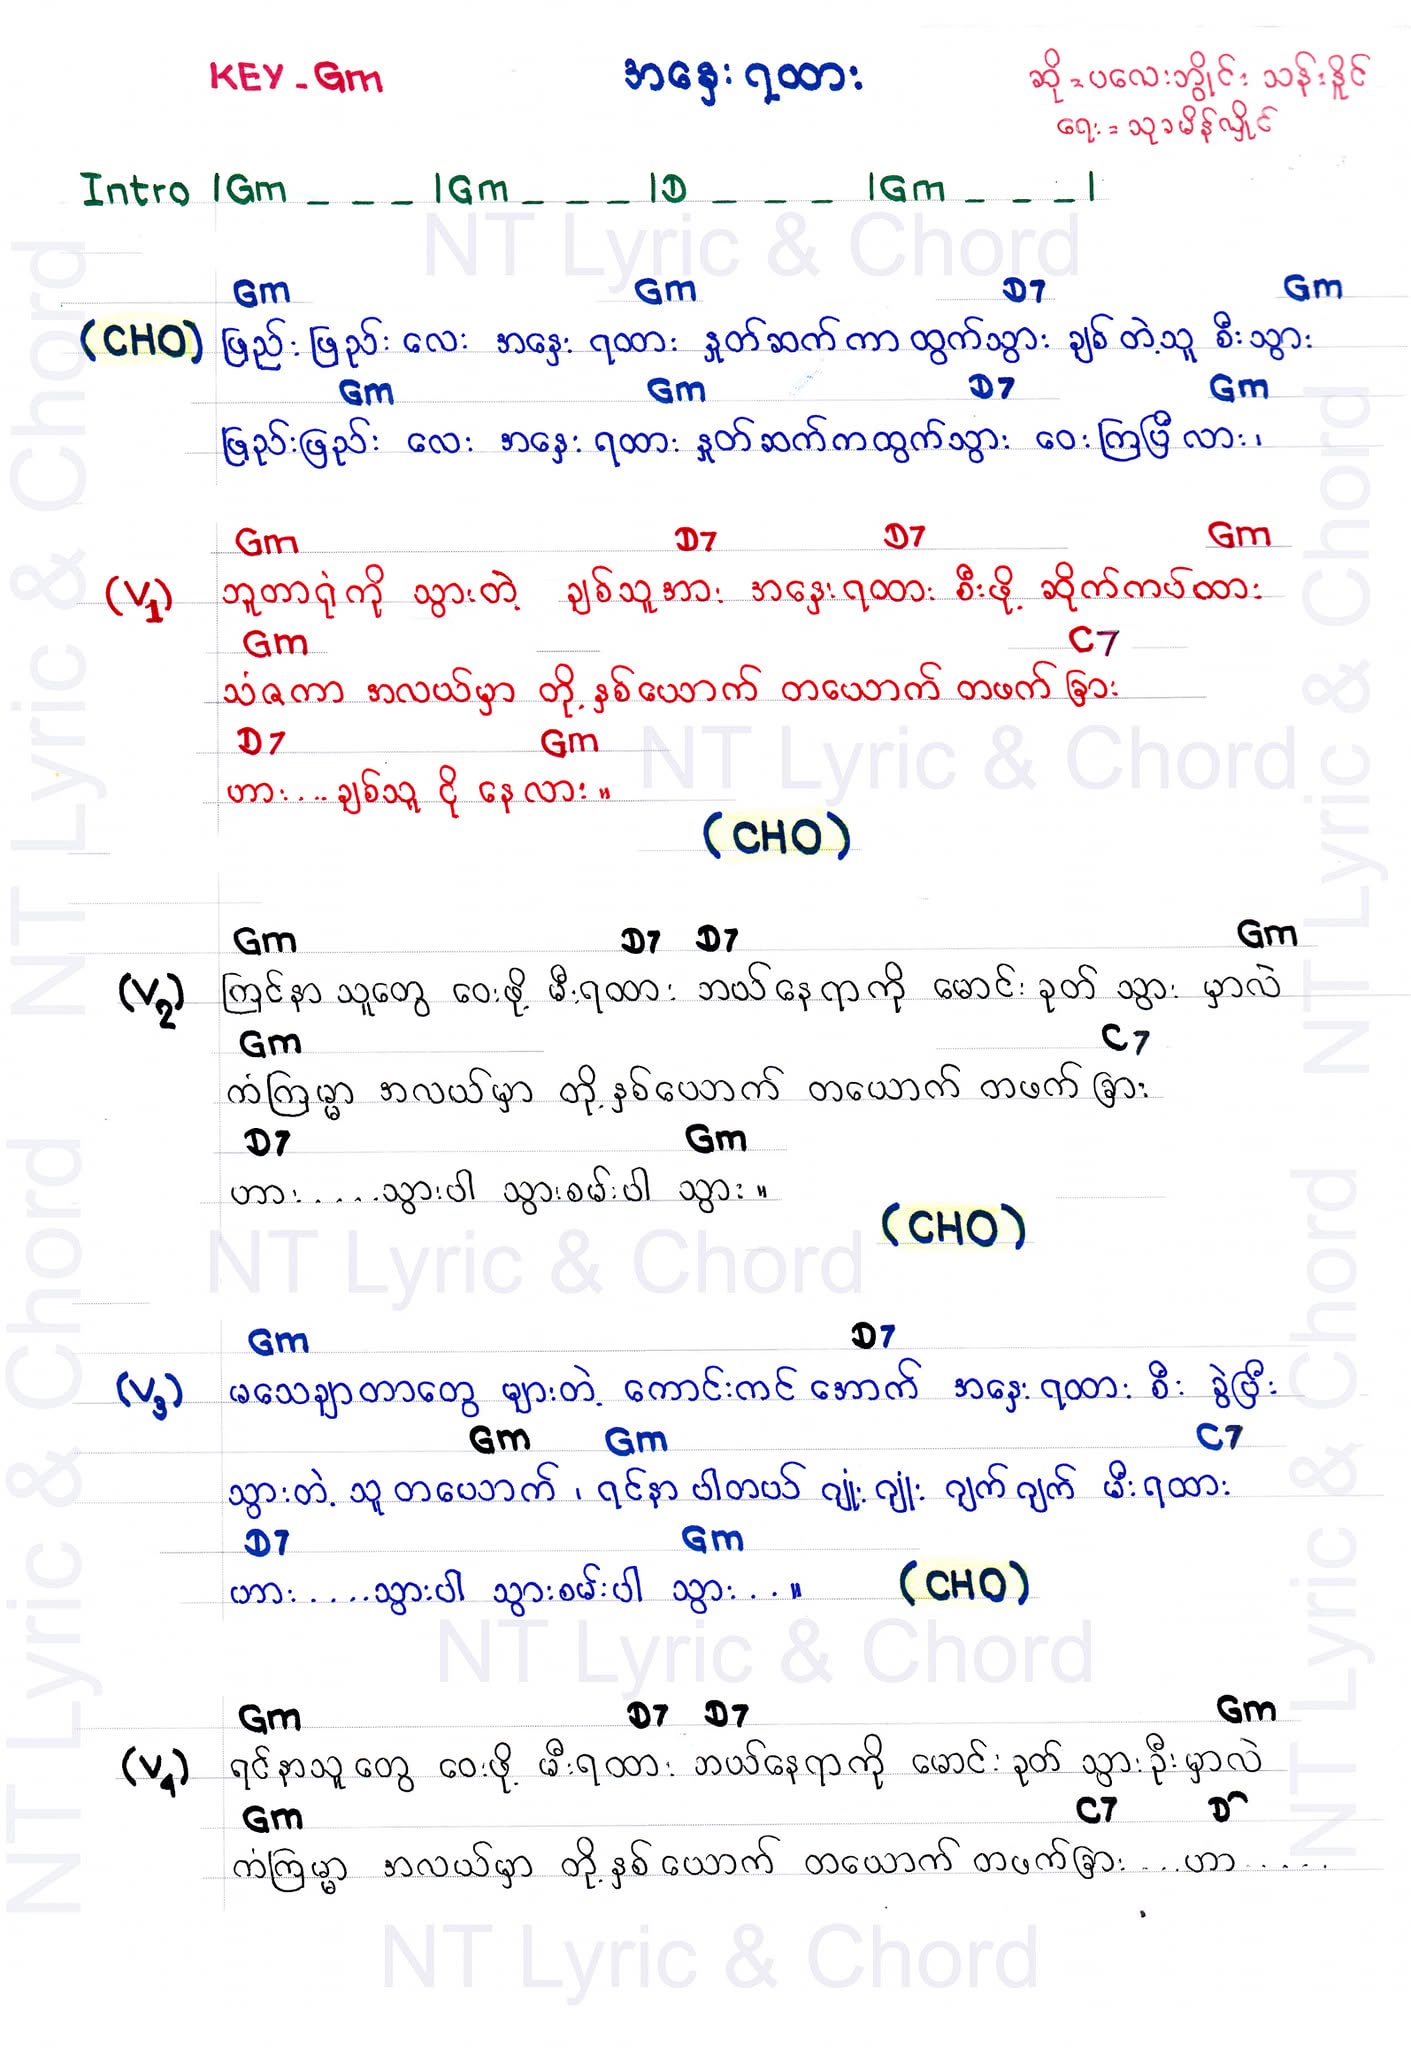 KEY - Gm
အနှေးရထား
ဆို = ပလေးဘွိုင်း သန်းနိုင်
ရေး = သုခမိန်လှိုင်
Intro |Gm _ _ _ |Gm _ _ _ |D _ _ _ |Gm _ _ _|
NT Lyric & Chord
Gm Gm D7 Gm
(CHO) ဖြည်းဖြည်းလေး အနှေးရထား နှုတ်ဆက်ကာထွက်သွား ချစ်တဲ့သူ စီးသွား
Gm Gm D7 Gm
ဖြည်းဖြည်း လေး အနှေးရထား နှုတ်ဆက်ကထွက်သွား ဝေးကြပြီလား၊
Gm D7 D7 Gm
(V1) ဘူတာရုံကို သွားတဲ့ ချစ်သူအား အနှေးရထား စီးဖို့ ဆိုက်ကပ်ထား
Gm C7
သံဇကာ အလယ်မှာ တို့နှစ်ယောက် တယောက်တဖက်ခြား
D7 Gm
ဟား....ချစ်သူ ငို နေလား။
NT Lyric & Chord
(CHO)
Gm D7 D7 Gm
(V2) ကြင်နာသူတွေ ဝေးဖို့ မီးရထား ဘယ်နေရာကို မောင်းခုတ် သွား မှာလဲ
Gm C7
ကံကြမ္မာ အလယ်မှာ တို့နှစ်ယောက် တယောက်တဖက်ခြား
D7 Gm
ဟား.....သွားပါ သွားစမ်းပါ သွား။
(CHO)
NT Lyric & Chord
Gm D7
(V3) မသေချာတာတွေ များတဲ့ ကောင်းကင်အောက် အနှေးရထား စီး ခွဲပြီး
Gm Gm C7
သွားတဲ့သူတယောက်၊ ရင်နာပါတယ် ဂျုံးဂျုံး ဂျက်ဂျက် မီးရထား
D7 Gm
ဟား.....သွားပါ သွားစမ်းပါ သွား...။ (CHO)
NT Lyric & Chord
Gm D7 D7 Gm
(V4) ရင်နာသူတွေ ဝေးဖို့ မီးရထား ဘယ်နေရာကို မောင်းခုတ် သွားဦးမှာလဲ
Gm C7 D^
ကံကြမ္မာ အလယ်မှာ တို့နှစ်ယောက် တယောက်တဖက်ခြား ...ဟာ.....
NT Lyric & Chord